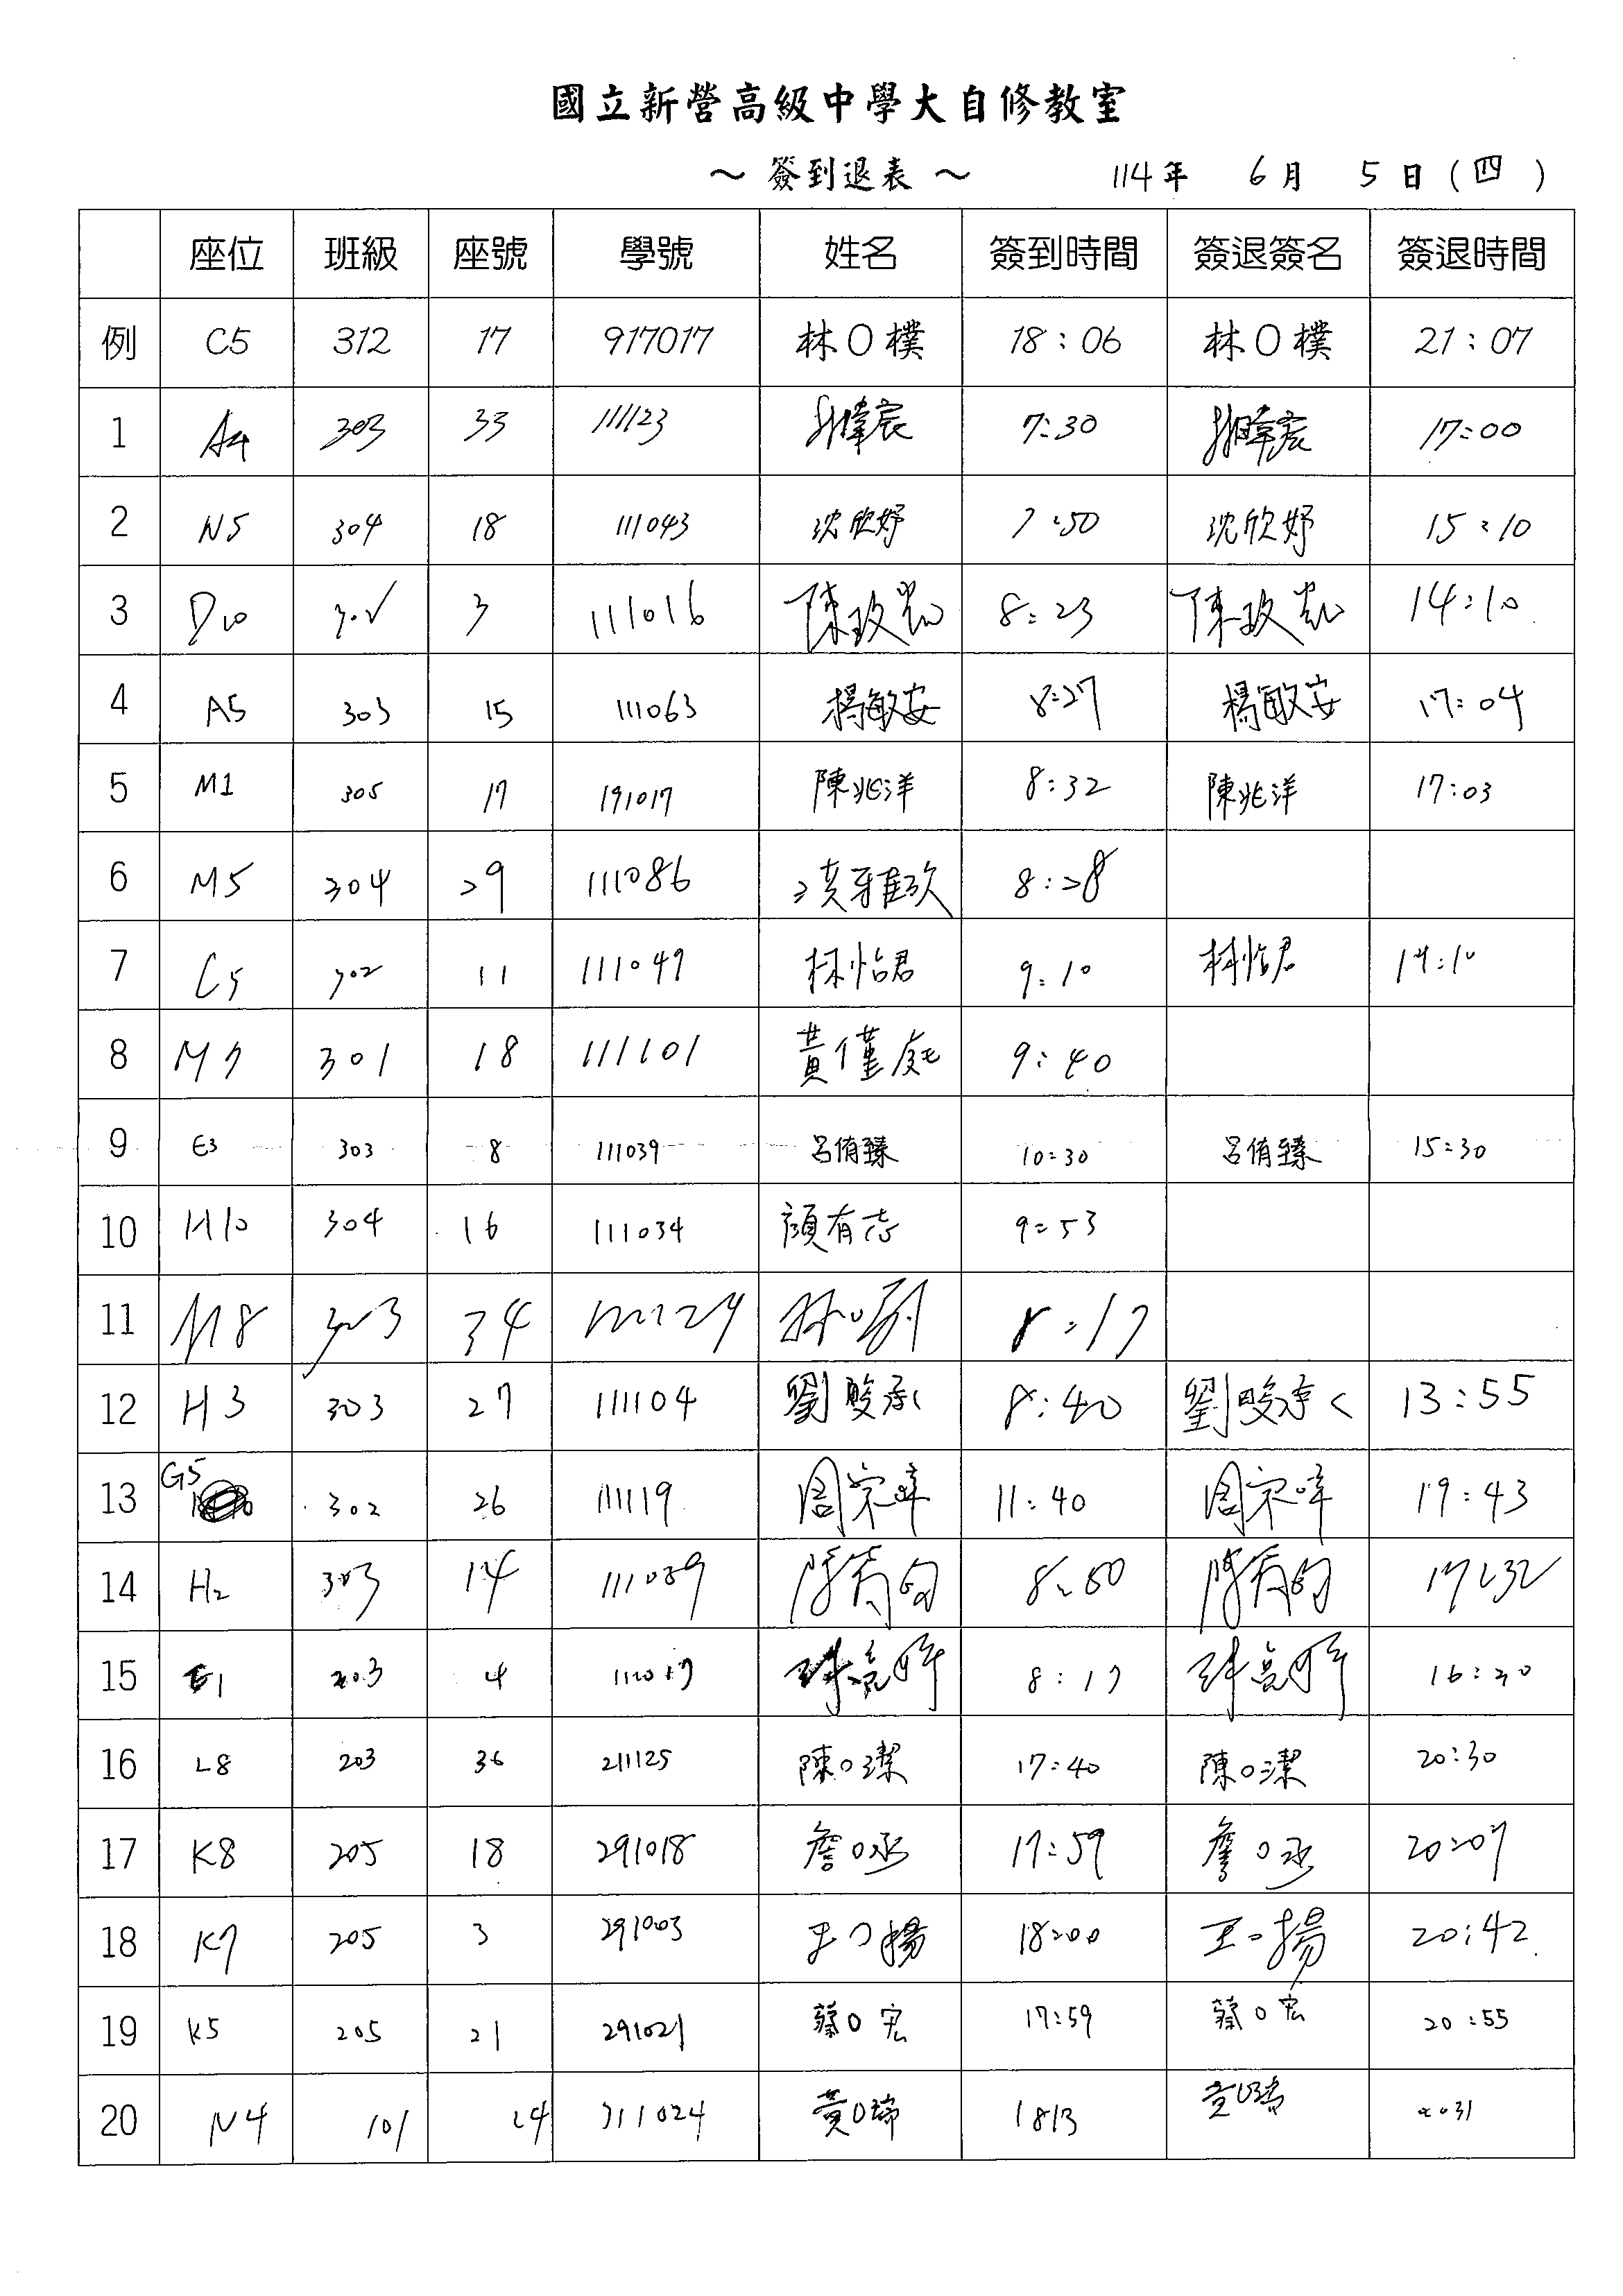 國立新營高級中學大自修教室
～ 簽到退表 ～ 114年 6月 5日(四)
座位 班級 座號 學號 姓名 簽到時間 簽退簽名 簽退時間
例 C5 312 17 917017 林O樸 18:06 林O樸 21:07
1 A4 303 33 111123 7:30 17:00
2 N5 304 18 111043 沈欣妤 7:50 沈欣妤 15:10
3 D10 302 3 111016 陳玫 8:23 陳玫 14:10
4 A5 303 15 111063 楊敏安 8:27 楊敏安 17:04
5 M1 305 17 191017 陳兆洋 8:32 陳兆洋 17:03
6 M5 304 29 111086 洪雅玟 8:28
7 C5 302 11 111049 林怡君 9:10 林怡君 14:10
8 M7 301 18 111101 黃僅庭 9:40
9 E3 303 8 111039 呂侑臻 10:30 呂侑臻 15:30
10 H10 304 16 111034 顏有志 9:53
11 M8 303 34 111124 8:17
12 H3 303 27 111104 劉駿承 8:40 劉駿承 13:55
13 G5 302 26 111119 周宗 11:40 周宗 19:43
14 H2 303 14 111059 8:50 17:32
15 303 4 8:17 16:30
16 L8 203 36 211125 陳O潔 17:40 陳O潔 20:30
17 K8 205 18 291018 詹O丞 17:59 詹O丞 20:07
18 K7 205 3 291003 王O揚 18:00 王O揚 20:42
19 K5 205 21 291021 蔡O宏 17:59 蔡O宏 20:55
20 N4 101 24 311024 黃O 1813 黃O 2031